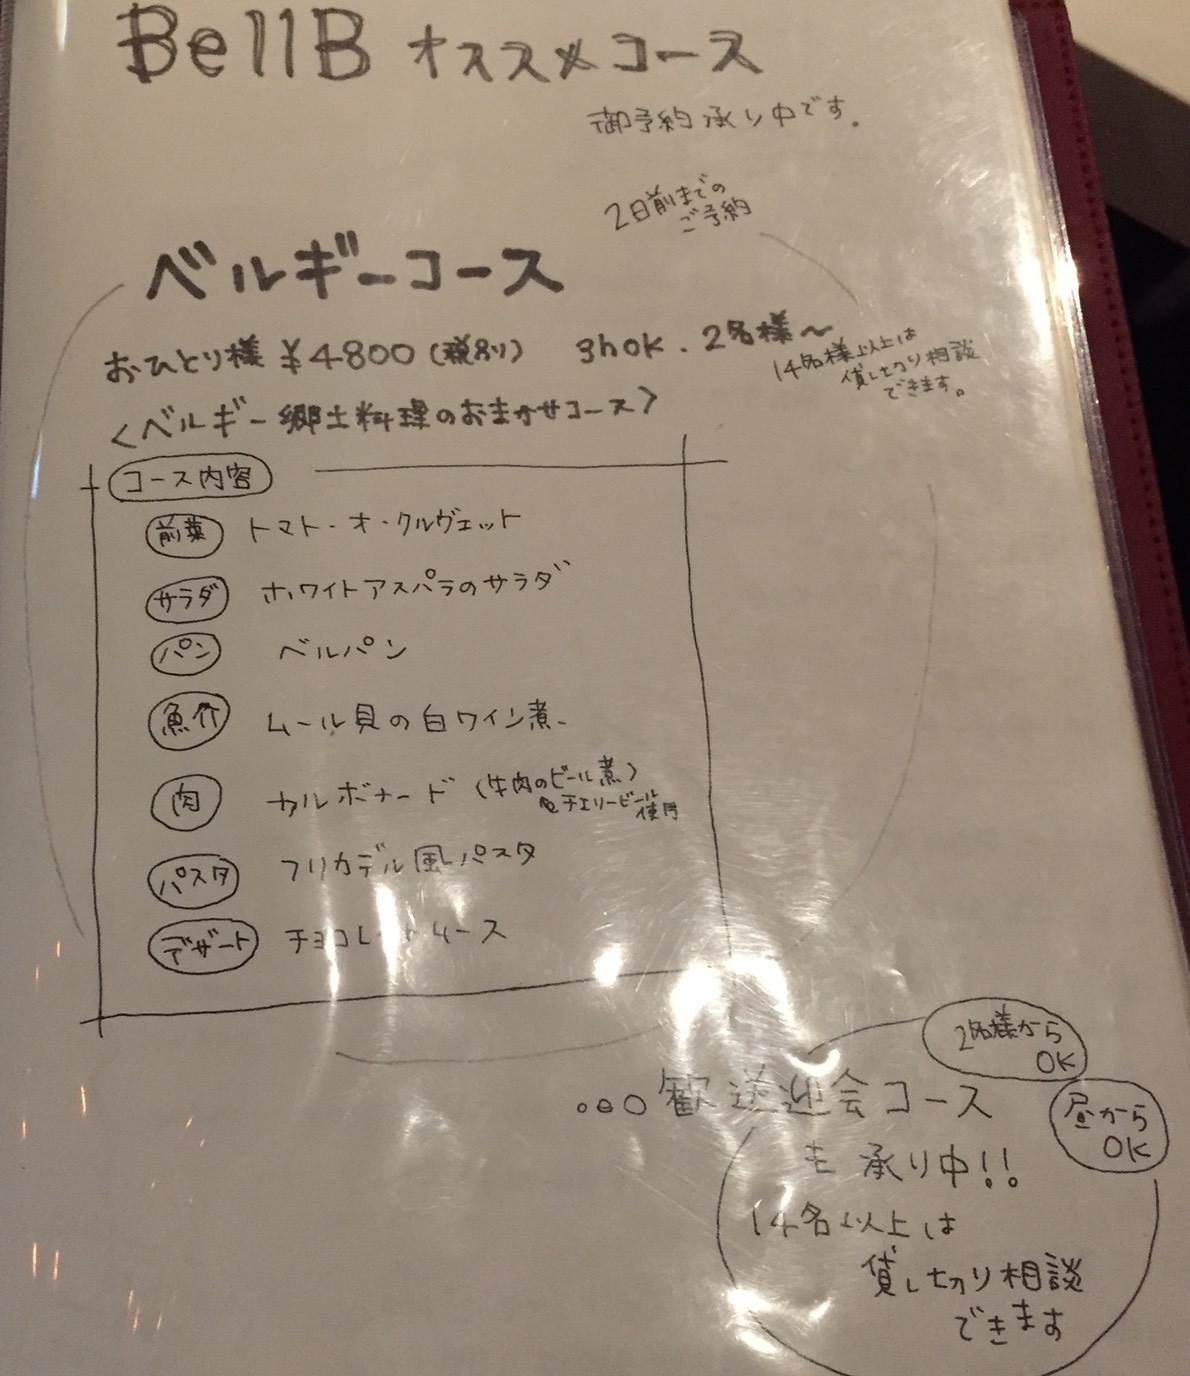 BellB オススメコース
御予約承り中です。
2日前までの
ご予約
ベルギーコース
おひとり様 ¥4800(税別) 3hOK. 2名様〜
14名様以上は
貸し切り相談
できます。
〈ベルギー郷土料理のおまかせコース〉
コース内容
前菜 トマト・オ・クルヴェット
サラダ ホワイトアスパラのサラダ
パン ベルパン
魚介 ムール貝の白ワイン煮
肉 カルボナード (牛肉のビール煮)
チェリービール
使用
パスタ フリカデル風パスタ
デザート チョコレートムース
2名様から
OK
...歓送迎会コース
昼から
OK
も承り中!!
14名以上は
貸し切り相談
できます